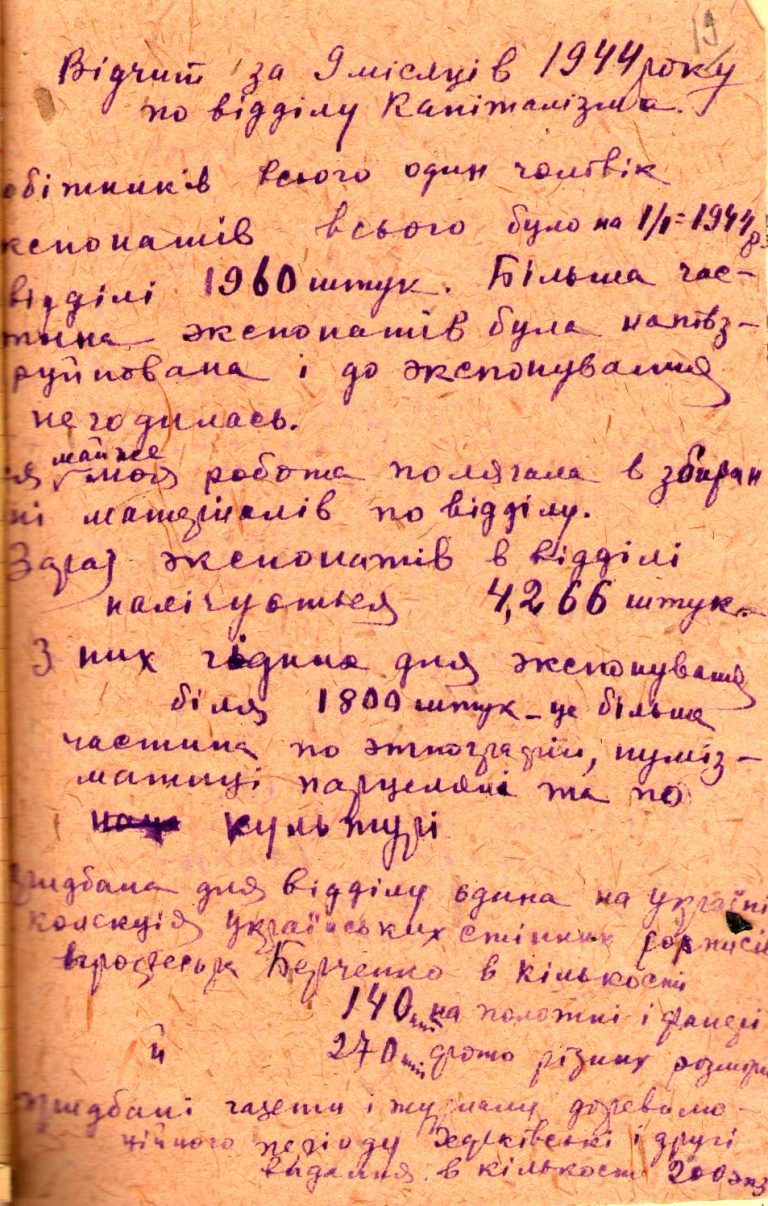 19
Відчит за 9 місяців 1944 року
по відділу Капіталізма.
обітників всього один чоловік
кспонатів всього було на 1/I=1944 р
відділі 1960 штук. Більша час-
тина экспонатів була напівз-
руйнована і до экспонування
не годилась.
ія майже моя робота полягала в збиран
ні матеріалів по відділу.
Зараз экспонатів в відділі
налічується 4,266 штук.
З них година для экспонування
біля 1800 штук - це більша
частина по этнографії, нуміз-
матиці парцеляні та по
культурі
ридбана для відділу єдина на україні
колекція українських стінних розписів
професора Берченко в кількості
140 шт на полотні і фанері
й 270 шт фото різних розмірі
придбані газети і журнали дореволю-
ційного періоду Харківські і другі
видання в кількості 200 экз